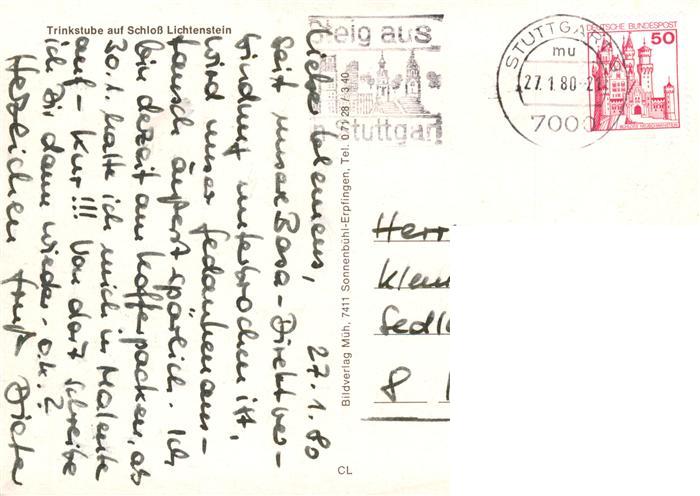 Trinkstube auf Schloß Lichtenstein
Steig aus
Stuttgart
STUTTGART
mu
27.1.80
7000
DEUTSCHE BUNDESPOST
50
SCHLOSS NEUSCHWANSTEIN
27.1.80
Lieber Clemens,
seit unsere Basa-Direktver-
bindung unterbrochen ist,
wird unser Gedankenaus-
tausch äußerst spärlich. Ich
bin derzeit am Kofferpacken, ab
30.1. halte ich mich in Malente
auf - Kur!!! Von dort schreibe
ich Dir dann wieder - o.k.?
Herzlichen Gruß Dieter
Bildverlag Müh, 7411 Sonnenbühl-Erpfingen, Tel. 0 71 28 / 3 40
CL
Herr
Klem
Sedl
8